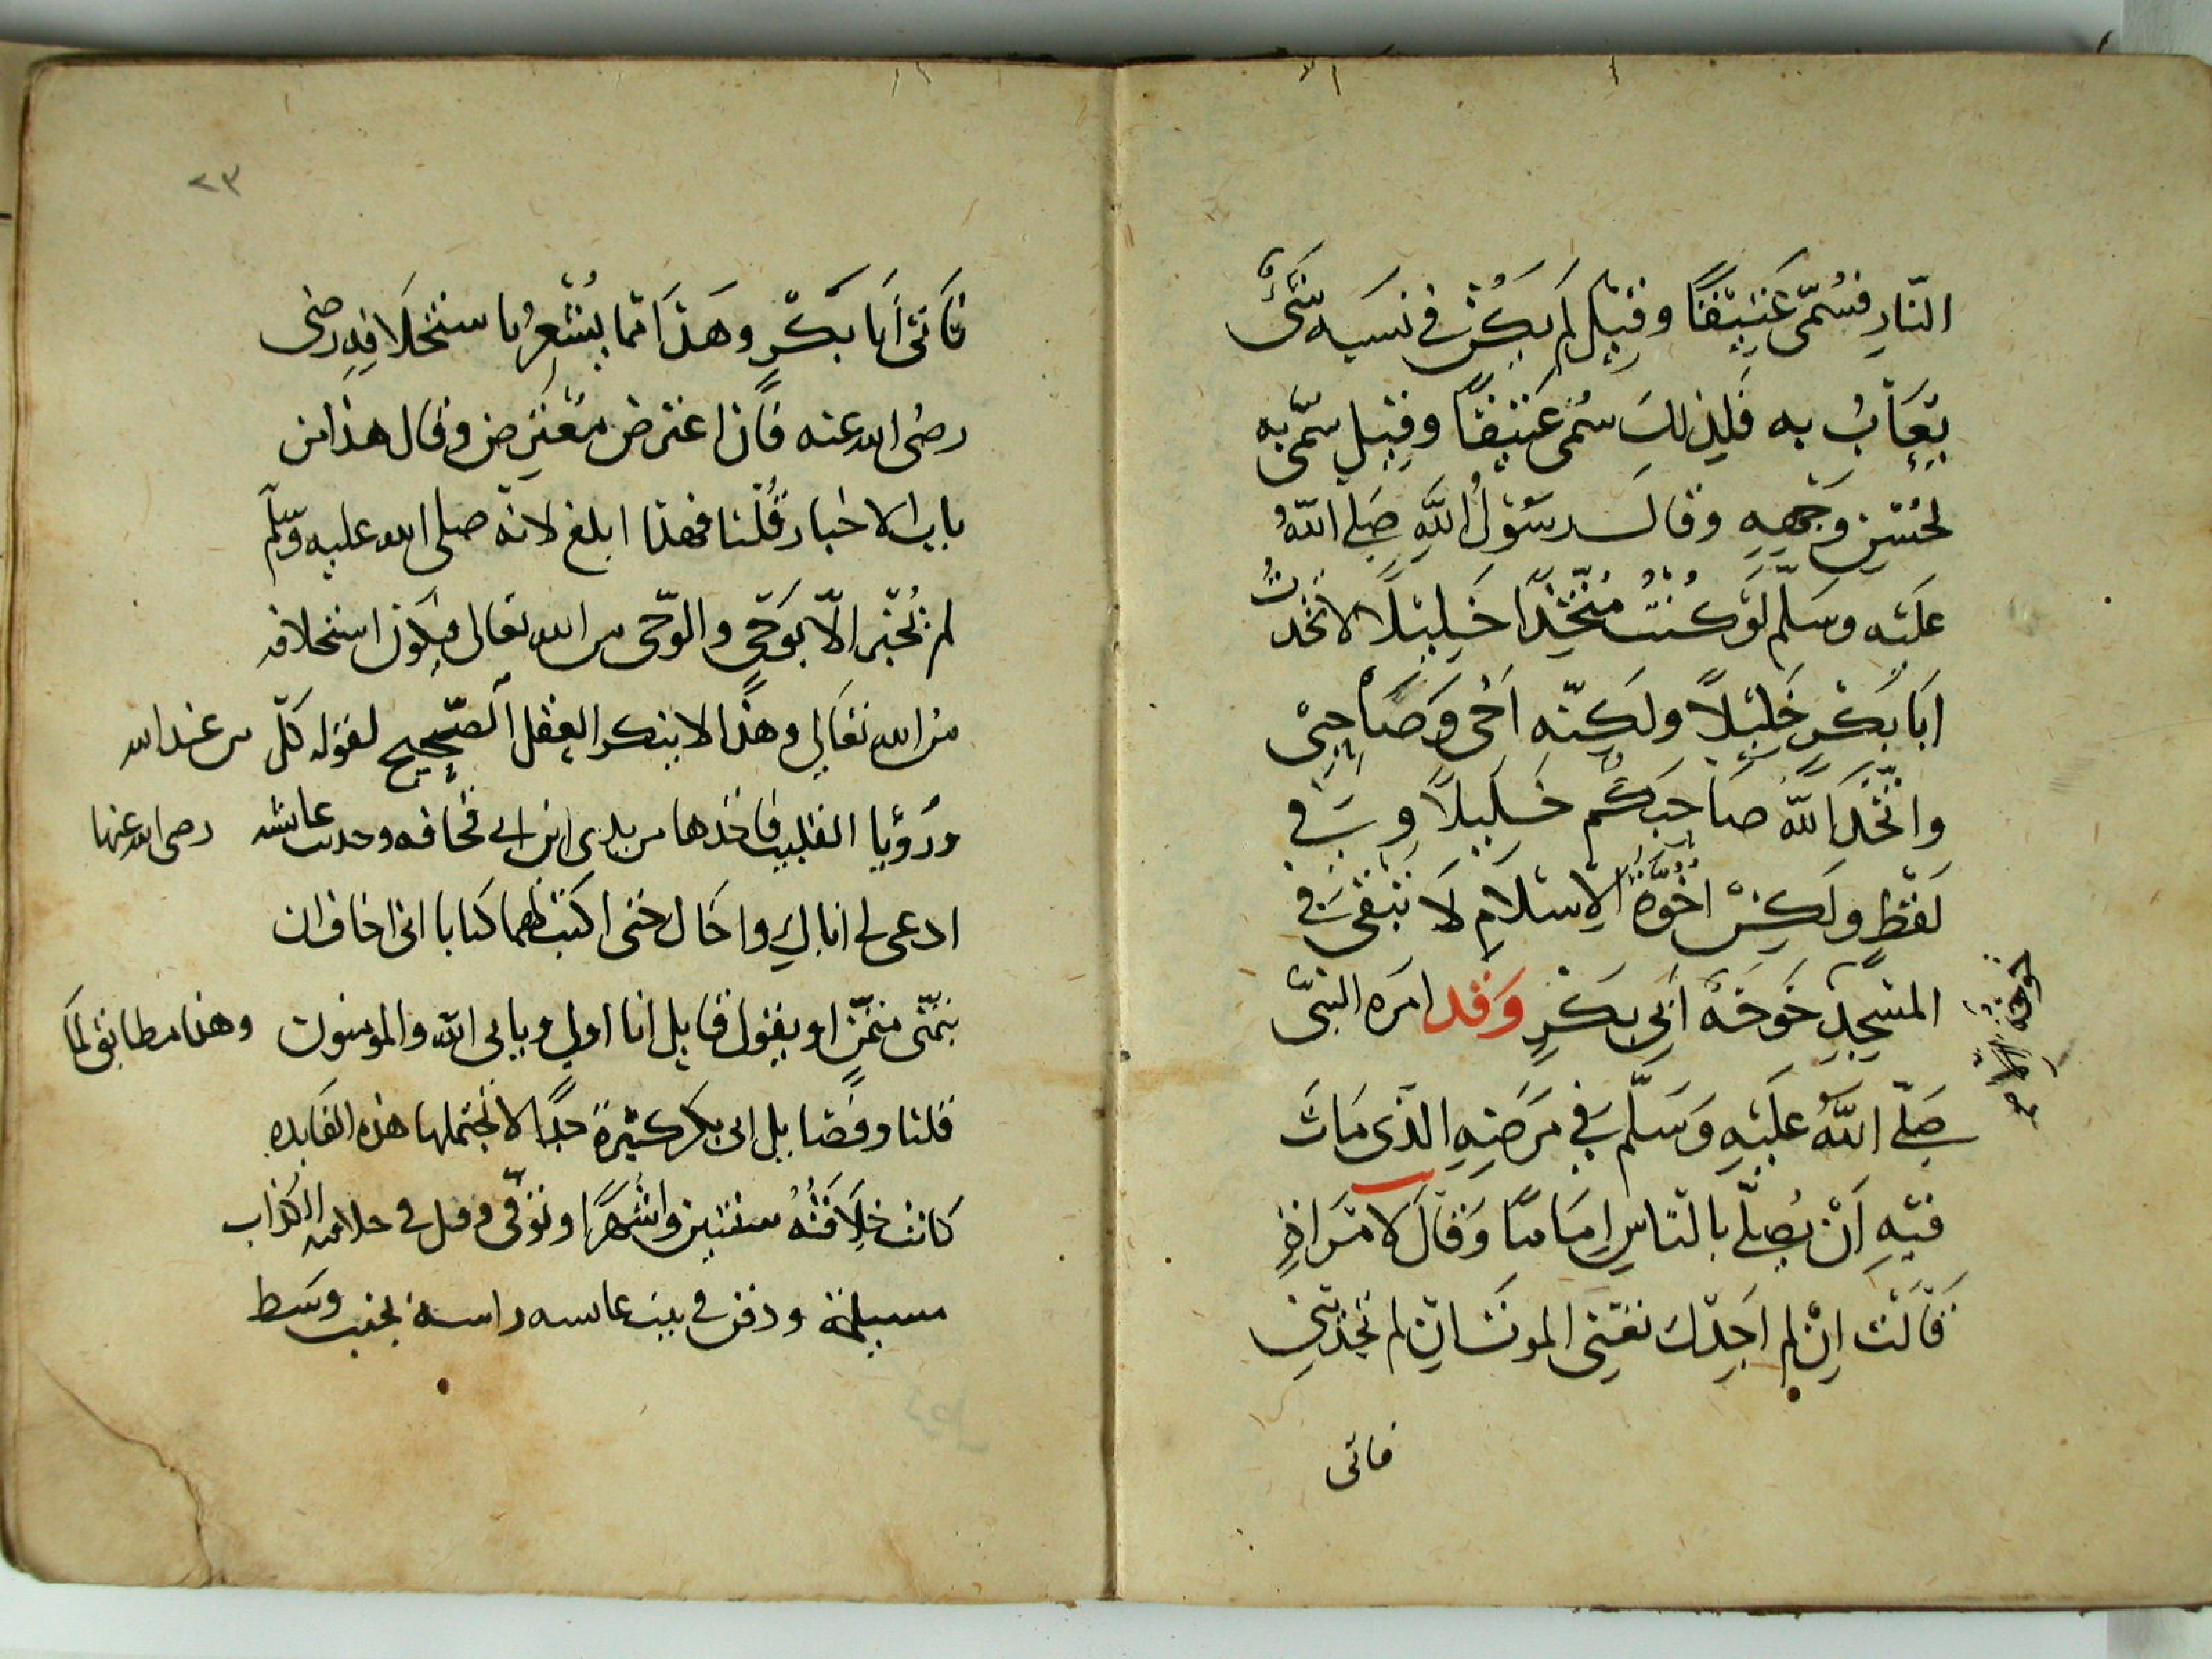 النّارِ فسُمّى عَتيقًا وقيل لم يكُن في نسَبه شَئٌ
يُعَابُ به فلِذلكَ سُمى عَتيقًا وقيل سُمّى به
لحُسْنِ وَجْهِهِ وقال رسُولُ اللهِ صَلى اللهُ
عليْه وسَلّم لوْ كُنتُ مُتّخِذًا خَلِيْلًا لاتخذتُ
ابَا بَكْرٍ خَلِيْلاً ولكِنّه اخى وَصَاحِبى
واتّخَذَ اللهُ صَاحِبَكُم خَلِيلاً وَفي
لَفْظٍ ولَكِنْ اُخُوّة الاِسْلَامِ لَا تبْقى في
المسْجِدِ خَوخَةٌ
اَبِي بَكْرٍ وَقد امَره النبىّ
صَلّى اللهُ عليْهِ وَسَلّم في مَرَضِهِ الذى مَاتَ
فيْهِ اَنْ يُصلّى بالنّاسِ اِمَامًا وَقالَ لامْرَاةٍ
قَالَتْ اِنْ لم اَجِدْكَ تعْنِى الموتَ اِن لم تجديني
فاتى
٢٣
فَاتى أبَا بَكْرٍ وَهَذَا ممّا يُشْعِرُ باستخلَافِهِ رضى
رضى الله عنه فَان اعترض مُعْترِض وقال هذا من
باب الاخبار قُلْنا فهذا ابلغ لانّه صلى الله عليه وسلّم
لم يُخْبر الاّ بوَحْيٍ والوَحْى من الله تعالى فيكون استخلافه
مِنَ الله تعَالى وهذا لا ينكر العقل الصّحِيح لقوله كلّ من عند الله
ورؤيا القليب فاخذها من يدى ابن ابى قحافه وحديث عايشه رضى الله عنها
ادعى لى اباكِ واخاك حتى اكتب لهما كتابا انى اخاف ان
يتمنّى متمنٍّ او يقول قايل انا اولى ويابى الله والمومنون وهذا مطابق لما
قلنا وفضايل ابى بكر كثيرة جدًا لا تحتملها هذه الفايده
كانت خلَافَتُهُ سنتين واشْهُرًا وتوفّى وقتل في خلافته الكذاب
مسيلمة ودفن في بيت عايشه راسه بجنب وسط